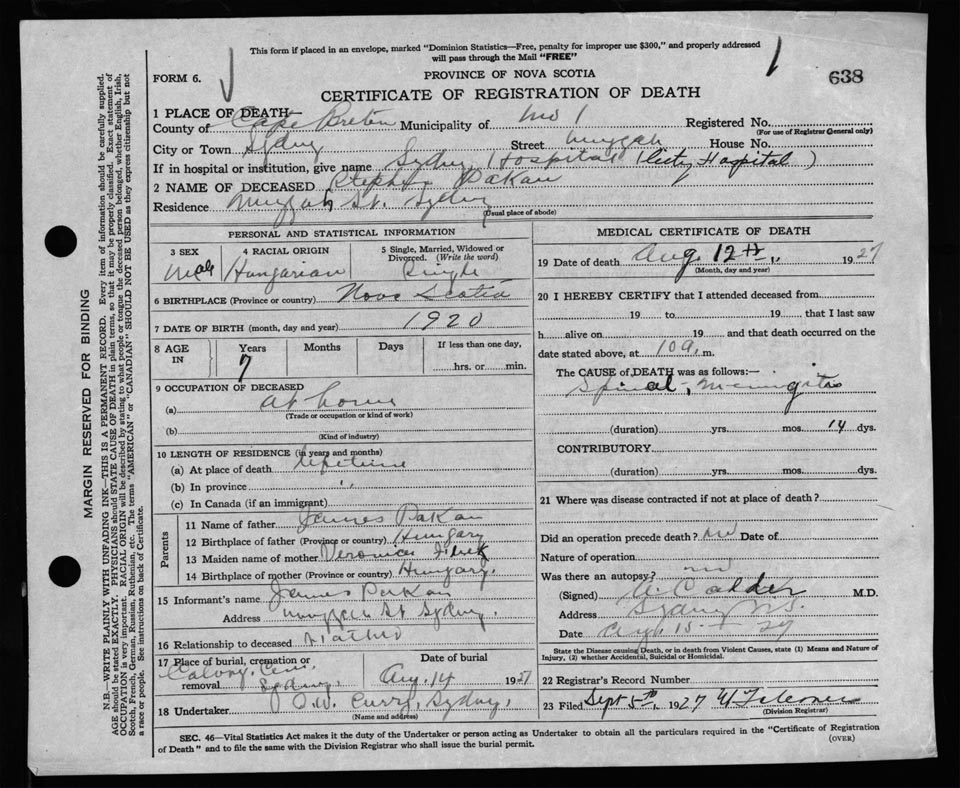 This form if placed in an envelope, marked "Dominion Statistics—Free, penalty for improper use $300," and properly addressed
will pass through the Mail "FREE"
FORM 6.
PROVINCE OF NOVA SCOTIA
1
638
CERTIFICATE OF REGISTRATION OF DEATH
1 PLACE OF DEATH
County of Cape Breton Municipality of No 1 Registered No.
(For use of Registrar General only)
City or Town Sydney Street House No.
If in hospital or institution, give name Sydney Hospital (City Hospital)
2 NAME OF DECEASED Stephen Pakan
Residence St. Sydney
(Usual place of abode)
PERSONAL AND STATISTICAL INFORMATION
3 SEX 4 RACIAL ORIGIN 5 Single, Married, Widowed or
Divorced. (Write the word)
Male Hungarian Single
6 BIRTHPLACE (Province or country) Nova Scotia
7 DATE OF BIRTH (month, day and year) 1920
8 AGE
IN
Years Months Days If less than one day,
7 hrs. or min.
9 OCCUPATION OF DECEASED
(a) at home
(Trade or occupation or kind of work)
(b)
(Kind of industry)
10 LENGTH OF RESIDENCE (in years and months)
(a) At place of death lifetime
(b) In province "
(c) In Canada (if an immigrant)
Parents
11 Name of father James Pakan
12 Birthplace of father (Province or country) Hungary
13 Maiden name of mother Veronica
14 Birthplace of mother (Province or country) Hungary.
15 Informant's name James Pakan
Address St Sydney.
16 Relationship to deceased Father
17 Place of burial, cremation or Date of burial
removal Calvary Cem. Sydney. Aug. 14 1927
18 Undertaker O.W. Curry, Sydney.
(Name and address)
MEDICAL CERTIFICATE OF DEATH
19 Date of death Aug 12th, 1927
(Month, day and year)
20 I HEREBY CERTIFY that I attended deceased from
19 to 19 that I last saw
h alive on 19 and that death occurred on the
date stated above, at 10 a. m.
The CAUSE of DEATH was as follows:—
Spinal, Meningitis
(duration) yrs. mos. 14 dys.
CONTRIBUTORY
(duration) yrs. mos. dys.
21 Where was disease contracted if not at place of death?
Did an operation precede death? no Date of
Nature of operation
Was there an autopsy? no
(Signed) Calder M.D.
Address Sydney N.S.
Date Aug. 15 — 27
State the Disease causing Death, or in death from Violent Causes, state (1) Means and Nature of
Injury, (2) whether Accidental, Suicidal or Homicidal.
22 Registrar's Record Number
23 Filed Sept 5th, 1927
(Division Registrar)
SEC. 46—Vital Statistics Act makes it the duty of the Undertaker or person acting as Undertaker to obtain all the particulars required in the "Certificate of Registration
of Death" and to file the same with the Division Registrar who shall issue the burial permit.
(OVER)
MARGIN RESERVED FOR BINDING
N.B.—WRITE PLAINLY WITH UNFADING INK—THIS IS A PERMANENT RECORD. Every item of information should be carefully supplied.
AGE should be stated EXACTLY. PHYSICIANS should STATE CAUSE OF DEATH in plain terms, so that it may be properly classified. Exact statement of
OCCUPATION is very important. RACIAL ORIGIN will be described by stating to what people or tongue the deceased person belonged, whether English, Irish,
Scotch, French, German, Russian, Ruthenian, etc. The terms "AMERICAN" or "CANADIAN" SHOULD NOT BE USED as they express citizenship but not
a race or people. See instructions on back of Certificate.